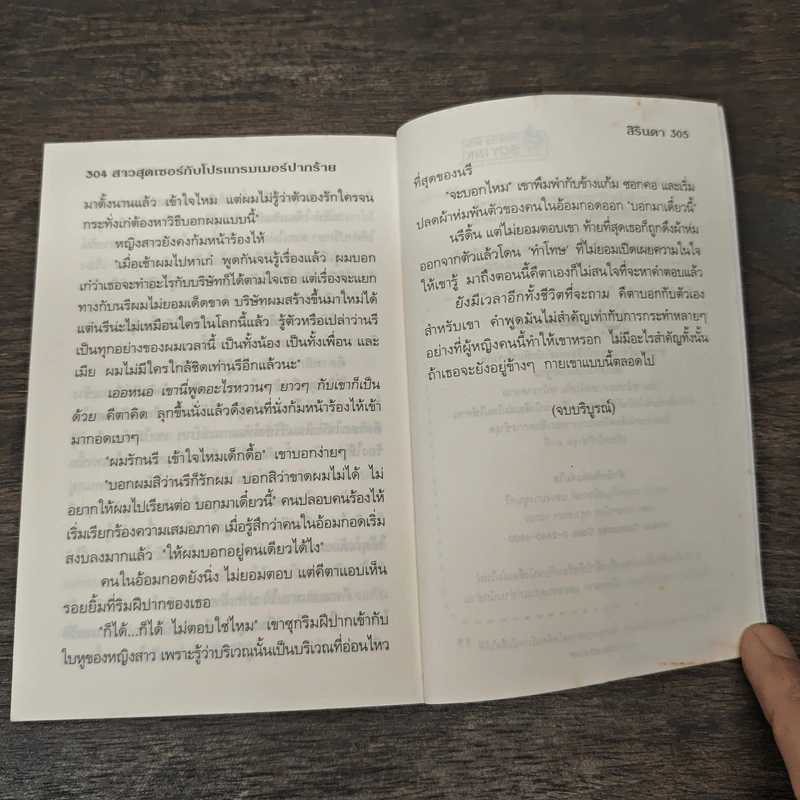 304 สาวสุดเซอร์กับโปรแกรมเมอร์ปากร้าย
มาตั้งนานแล้ว เข้าใจไหม แต่ผมไม่รู้ว่าตัวเองรักใครจน
กระทั่งเก๋ต้องหาวิธีบอกผมแบบนี้"
หญิงสาวยังคงก้มหน้าร้องไห้
"เมื่อเช้าผมไปหาเก๋ พูดกันจนรู้เรื่องแล้ว ผมบอก
เก๋ว่าเธอจะทำอะไรกับบริษัทก็ได้ตามใจเลย แต่เรื่องจะแยก
ทางกับนรีผมไม่ยอมเด็ดขาด บริษัทผมสร้างขึ้นมาใหม่ได้
แต่นรีน่ะไม่เหมือนใครในโลกนี้แล้ว รู้ตัวหรือเปล่าว่านรี
เป็นทุกอย่างของผมเวลานี้ เป็นทั้งน้อง เป็นทั้งเพื่อน และ
เมีย ผมไม่มีใครใกล้ชิดเท่านรีอีกแล้วนะ"
เออหนอ เขานี่พูดอะไรหวานๆ ยาวๆ กับเขาก็เป็น
ด้วย คีตาคิด ลุกขึ้นนั่งแล้วดึงคนที่นั่งก้มหน้าร้องไห้เข้า
มากอดเบาๆ
"ผมรักนรี เข้าใจไหมเด็กดื้อ" เขาบอกง่ายๆ
"บอกผมสิว่านรีก็รักผม บอกสิว่าขาดผมไม่ได้ ไม่
อยากให้ผมไปเรียนต่อ บอกมาเดี๋ยวนี้" คนปลอบคนร้องไห้
เริ่มเรียกร้องความเสมอภาค เมื่อรู้สึกว่าคนในอ้อมกอดเริ่ม
สงบลงมากแล้ว "ให้ผมบอกอยู่คนเดียวได้ไง"
คนในอ้อมกอดยังนิ่ง ไม่ยอมตอบ แต่คีตาแอบเห็น
รอยยิ้มที่ริมฝีปากของเธอ
"ก็ได้...ก็ได้ ไม่ตอบใช่ไหม" เขาซุกริมฝีปากเข้ากับ
ใบหูของหญิงสาว เพราะรู้ว่าบริเวณนั้นเป็นบริเวณที่อ่อนไหว
สิรินดา 305
ที่สุดของนรี
"จะบอกไหม" เขาพึมพำกับข้างแก้ม ซอกคอ และเริ่ม
ปลดผ้าห่มพันตัวของคนในอ้อมกอดออก "บอกมาเดี๋ยวนี้"
นรีดิ้น แต่ไม่ยอมตอบเขา ท้ายที่สุดเธอก็ถูกดึงผ้าห่ม
ออกจากตัวแล้วโดน 'ทำโทษ' ที่ไม่ยอมเปิดเผยความในใจ
ให้เขารู้ มาถึงตอนนี้คีตาเองก็ไม่สนใจที่จะหาคำตอบแล้ว
ยังมีเวลาอีกทั้งชีวิตที่จะถาม คีตาบอกกับตัวเอง
สำหรับเขา คำพูดมันไม่สำคัญเท่ากับการกระทำหลายๆ
อย่างที่ผู้หญิงคนนี้ทำให้เขาหรอก ไม่มีอะไรสำคัญทั้งนั้น
ถ้าเธอจะยังอยู่ข้างๆ กายเขาแบบนี้ตลอดไป
(จบบริบูรณ์)